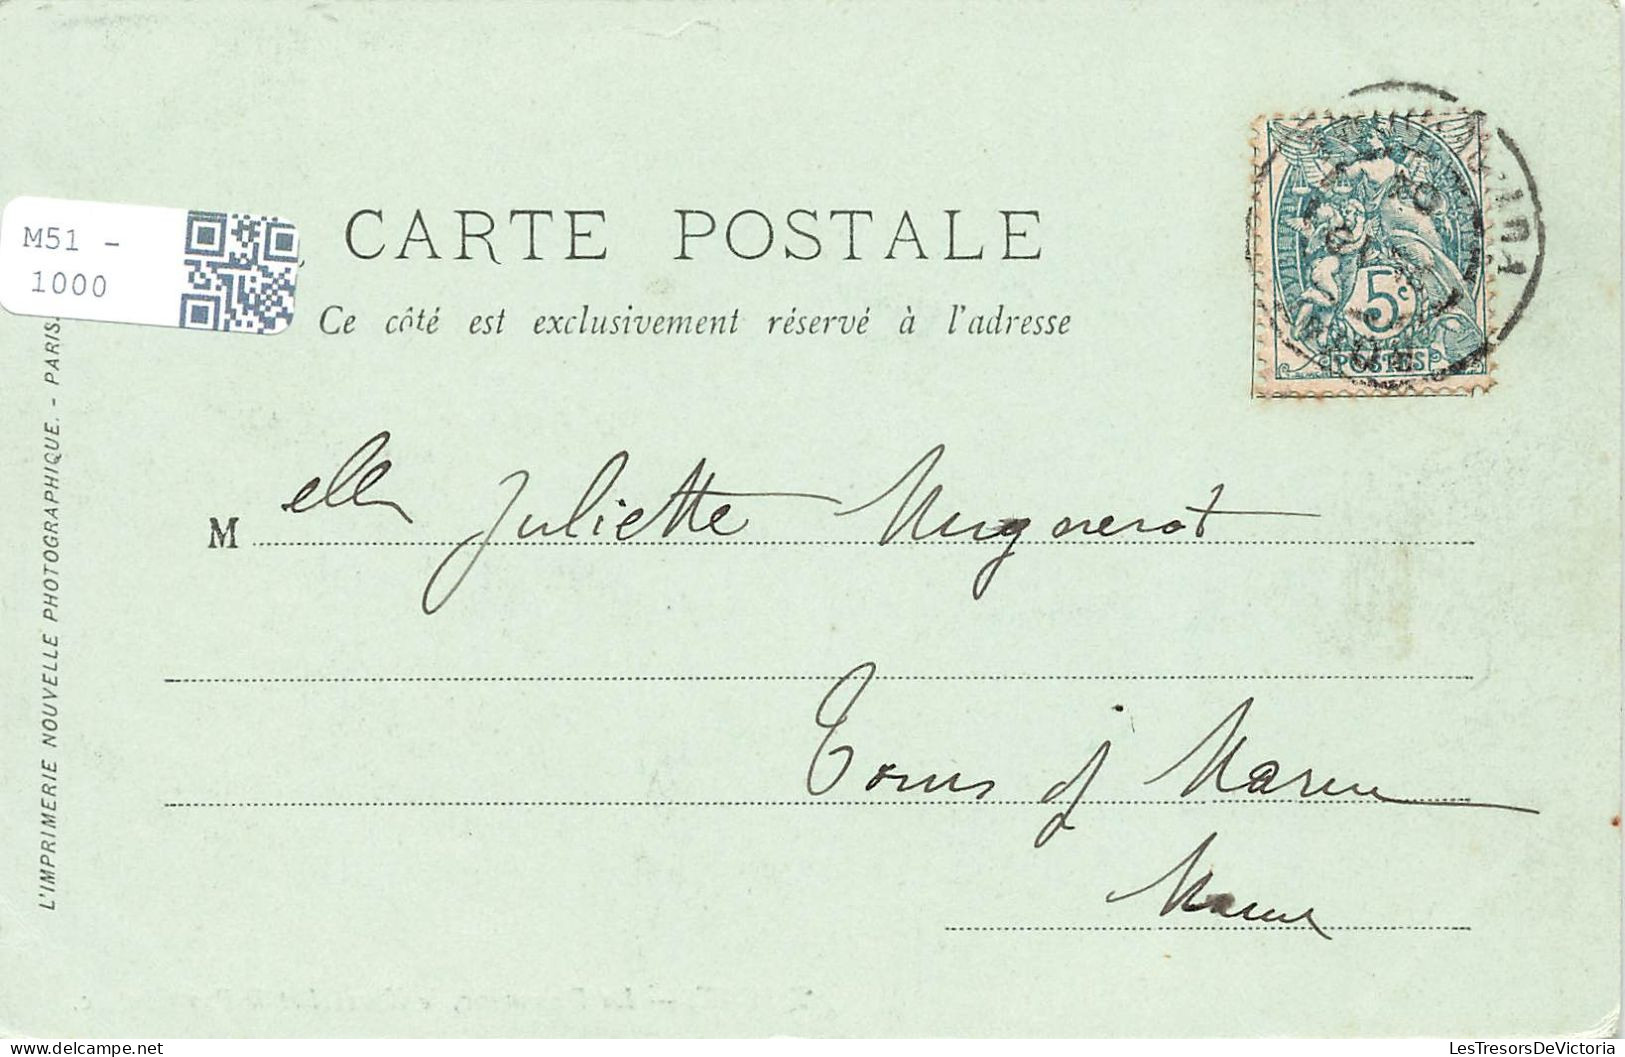 CARTE POSTALE
Ce côté est exclusivement réservé à l'adresse
M51 -
1000
5c
POSTES
Melle Juliette Mugnerot
Tours s/ Marne
Marne
L'IMPRIMERIE NOUVELLE PHOTOGRAPHIQUE. - PARIS.
LesTresorsDeVictoria